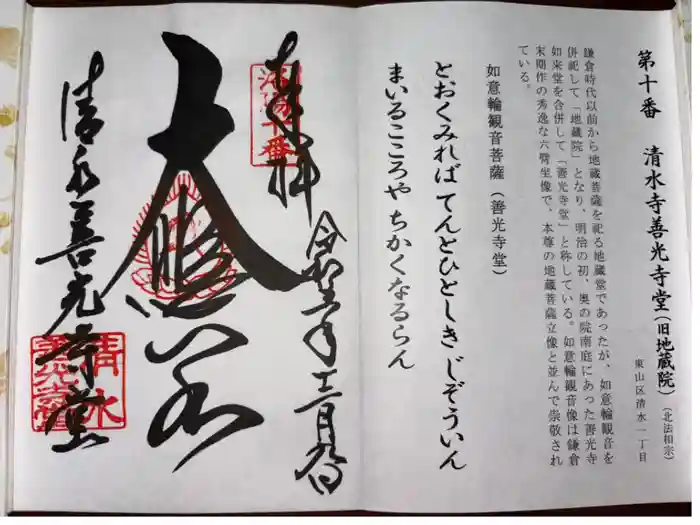 第十番　清水寺善光寺堂（旧地蔵院）（北法相宗）
東山区清水一丁目
鎌倉時代以前から地蔵菩薩を祀る地蔵堂であったが、如意輪観音を
併祀して「地蔵院」となり、明治の初、奥の院南庭にあった善光寺
如来堂を合併して「善光寺堂」と称している。如意輪観音像は鎌倉
末期作の秀逸な六臂坐像で、本尊の地蔵菩薩立像と並んで崇敬され
ている。
如意輪観音菩薩（善光寺堂）
とおくみれば てんとひとしき じぞういん
まいるこころや ちかくなるらん
奉拝
洛陽十番
大悲
清水善光寺堂
清水
善光寺